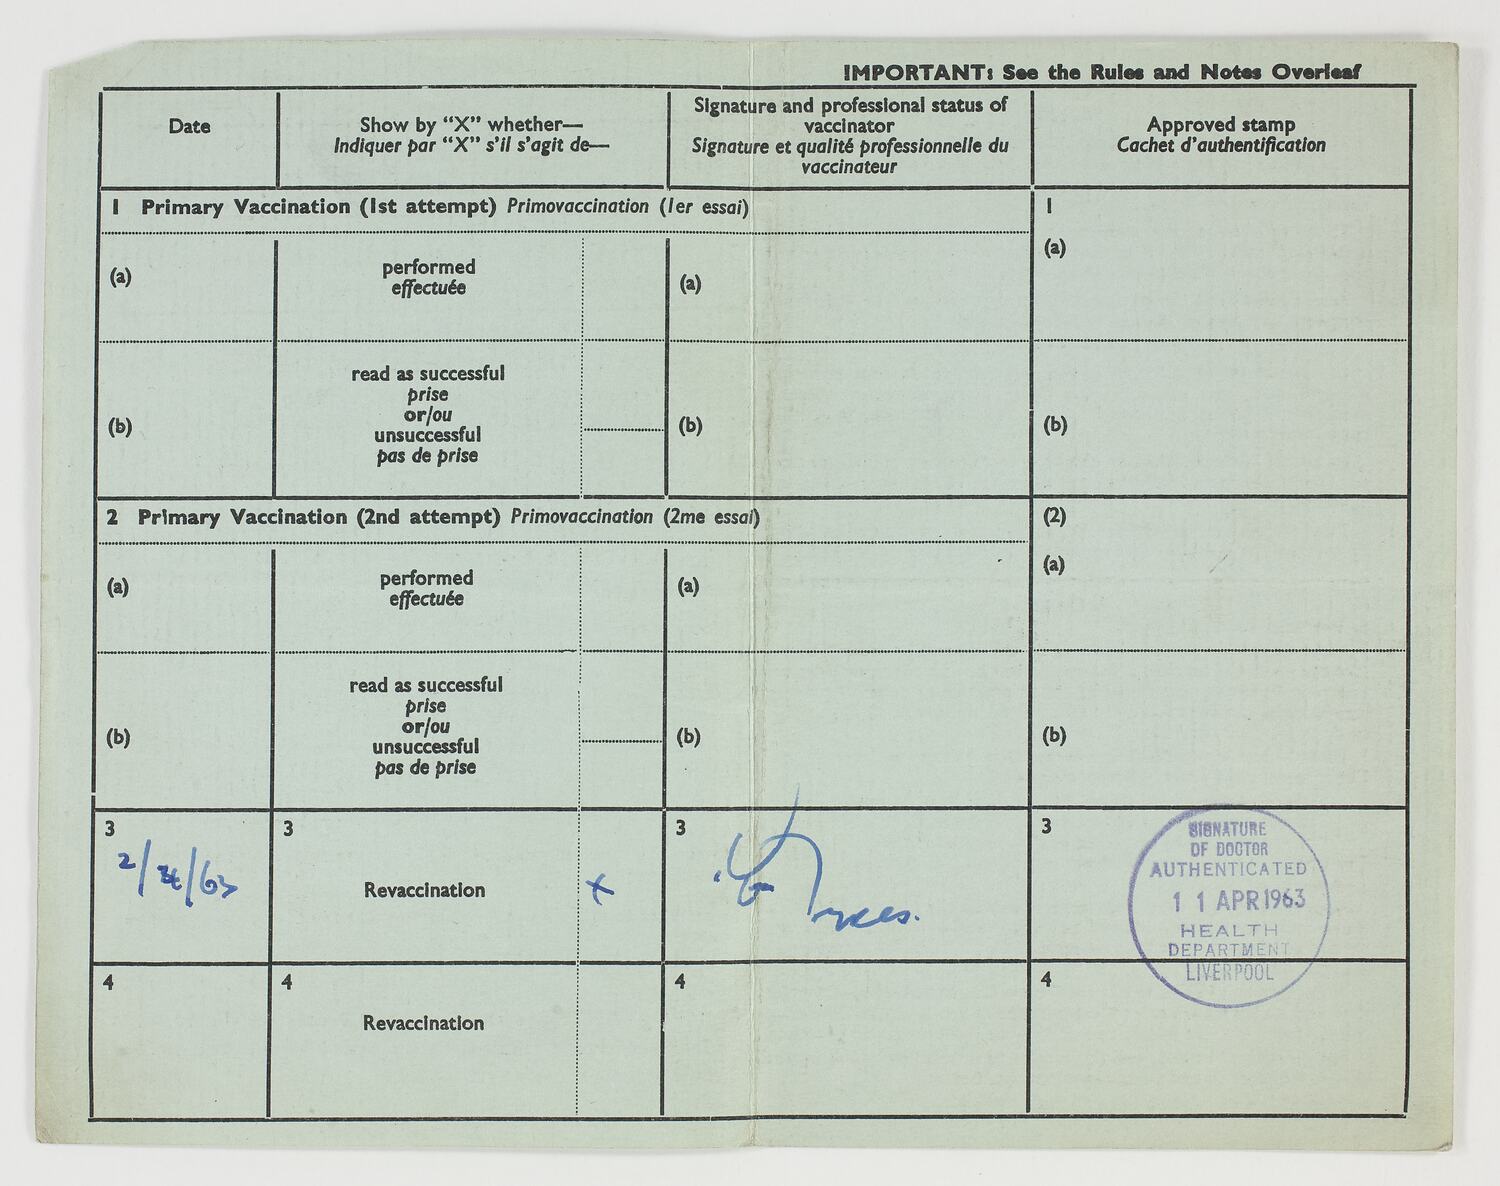 IMPORTANT: See the Rules and Notes Overleaf
Date
Show by "X" whether—
Indiquer par "X" s'il s'agit de—
Signature and professional status of
vaccinator
Signature et qualité professionnelle du
vaccinateur
Approved stamp
Cachet d'authentification
1 Primary Vaccination (1st attempt) Primovaccination (1er essai)
1
(a)
performed
effectuée
(a)
(a)
(b)
read as successful
prise
or/ou
unsuccessful
pas de prise
(b)
(b)
2 Primary Vaccination (2nd attempt) Primovaccination (2me essai)
(2)
(a)
performed
effectuée
(a)
(a)
(b)
read as successful
prise
or/ou
unsuccessful
pas de prise
(b)
(b)
3
3
Revaccination
X
3
3
SIGNATURE
OF DOCTOR
AUTHENTICATED
11 APR 1963
HEALTH
DEPARTMENT
LIVERPOOL
4
4
Revaccination
4
4